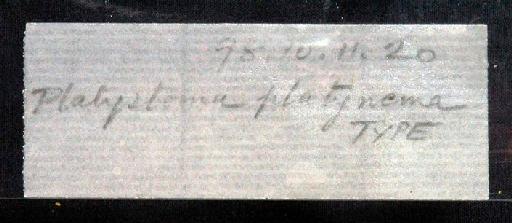 95.10.11.20
Platystoma platynema
TYPE